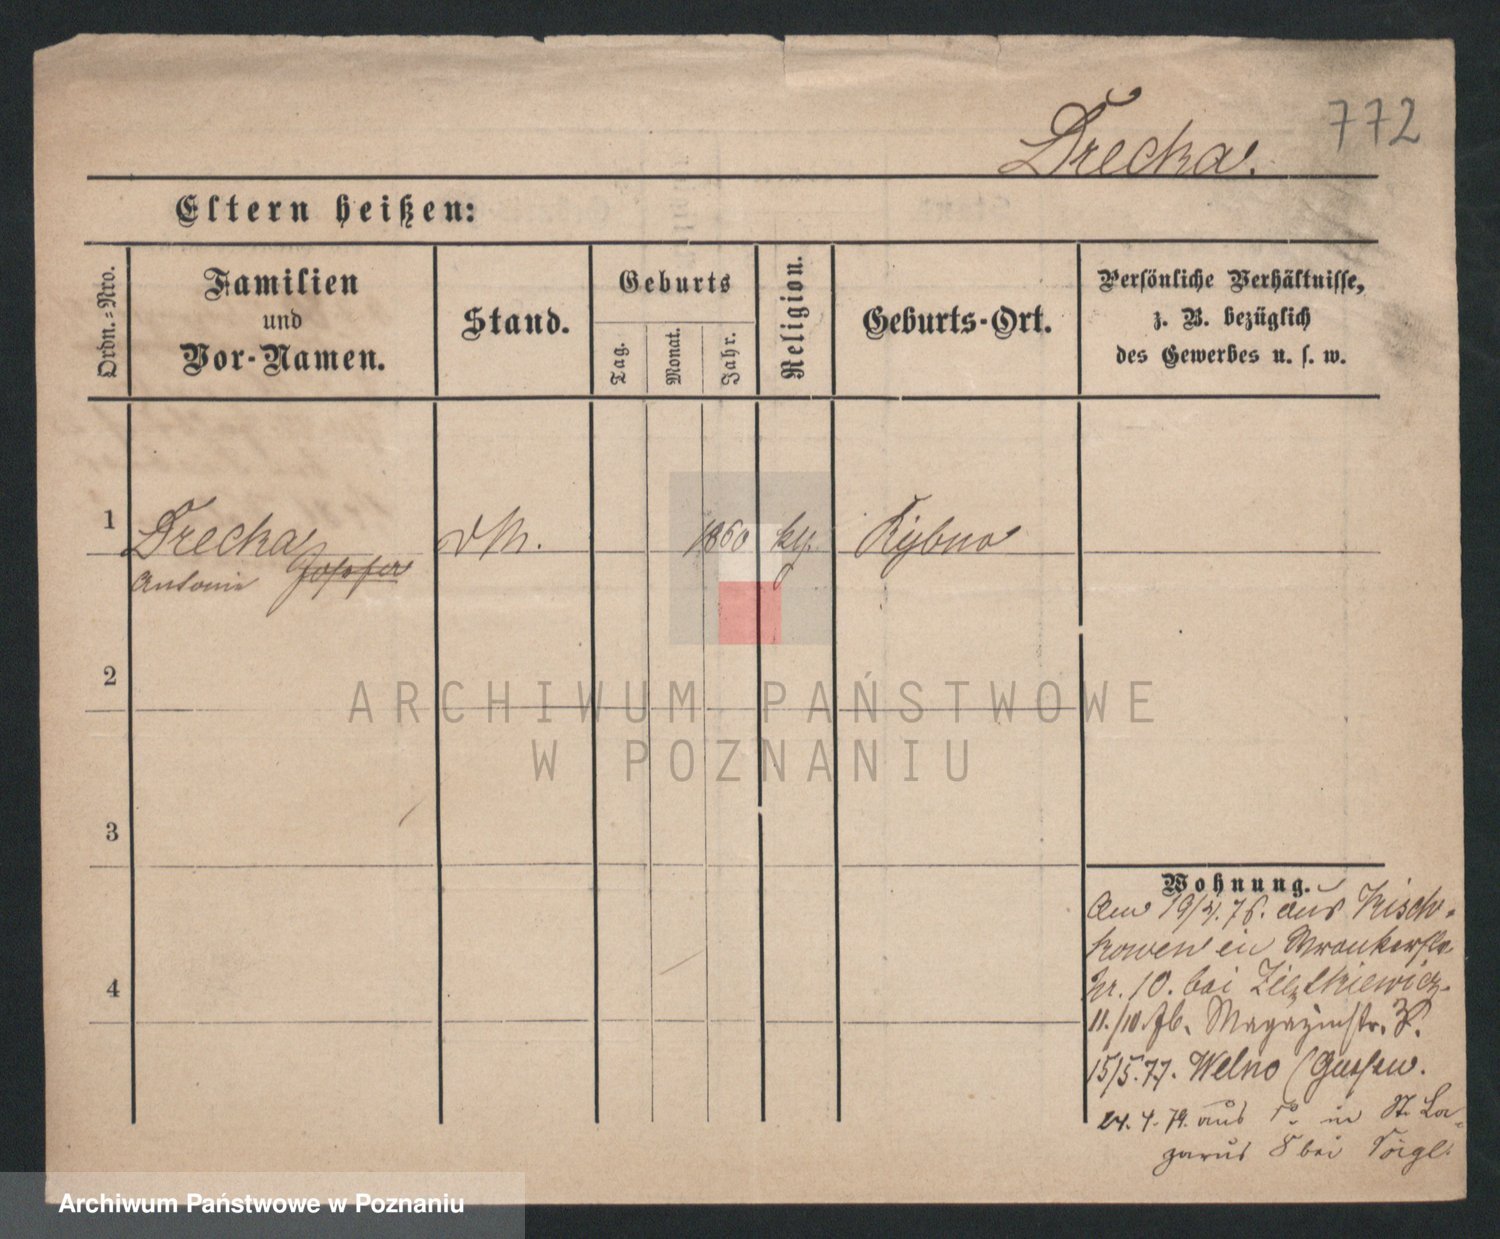 772
Drecka.
Eltern heißen:
Ordn.-Nro.
Familien
und
Vor-Namen.
Stand.
Geburts
Tag.
Monat.
Jahr.
Religion.
Geburts-Ort.
Persönliche Verhältnisse,
z. B. bezüglich
des Gewerbes u. s. w.
1
Drecka
Antonie
1860
Rybno
2
ARCHIWUM PAŃSTWOWE
W POZNANIU
3
4
Wohnung.
Am 19/4.76. aus Kisch-
kowen in
Nr. 10. bei
11./10. Magazinstr.
15/5.77. Welno
24. 4. 79. aus in St. La-
zarus 8 bei
Archiwum Państwowe w Poznaniu